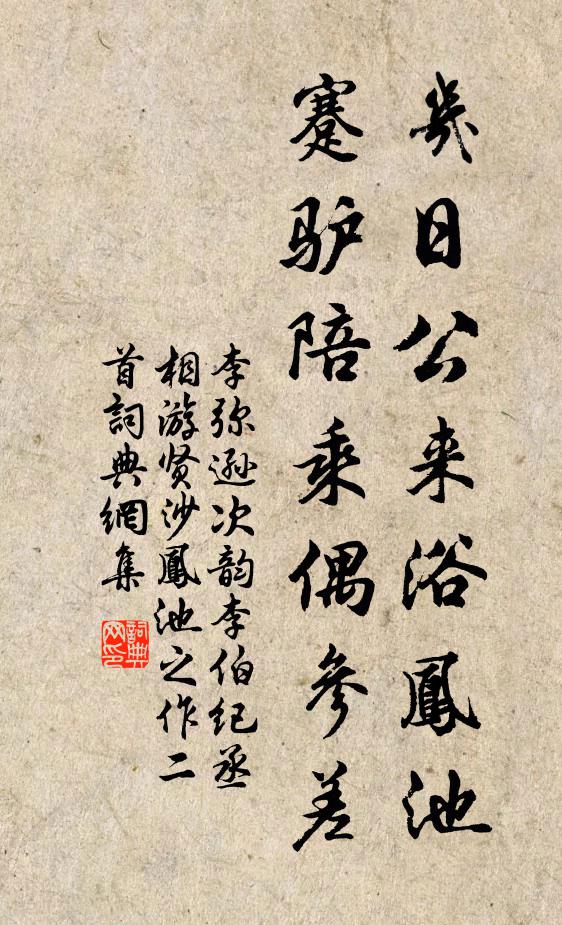 幾日公来浴鳳池
蹇驴陪乘偶參差
李弥遜次韵李伯纪丞
相游贤沙鳳池之作二
首詞典網集
詞典
网印